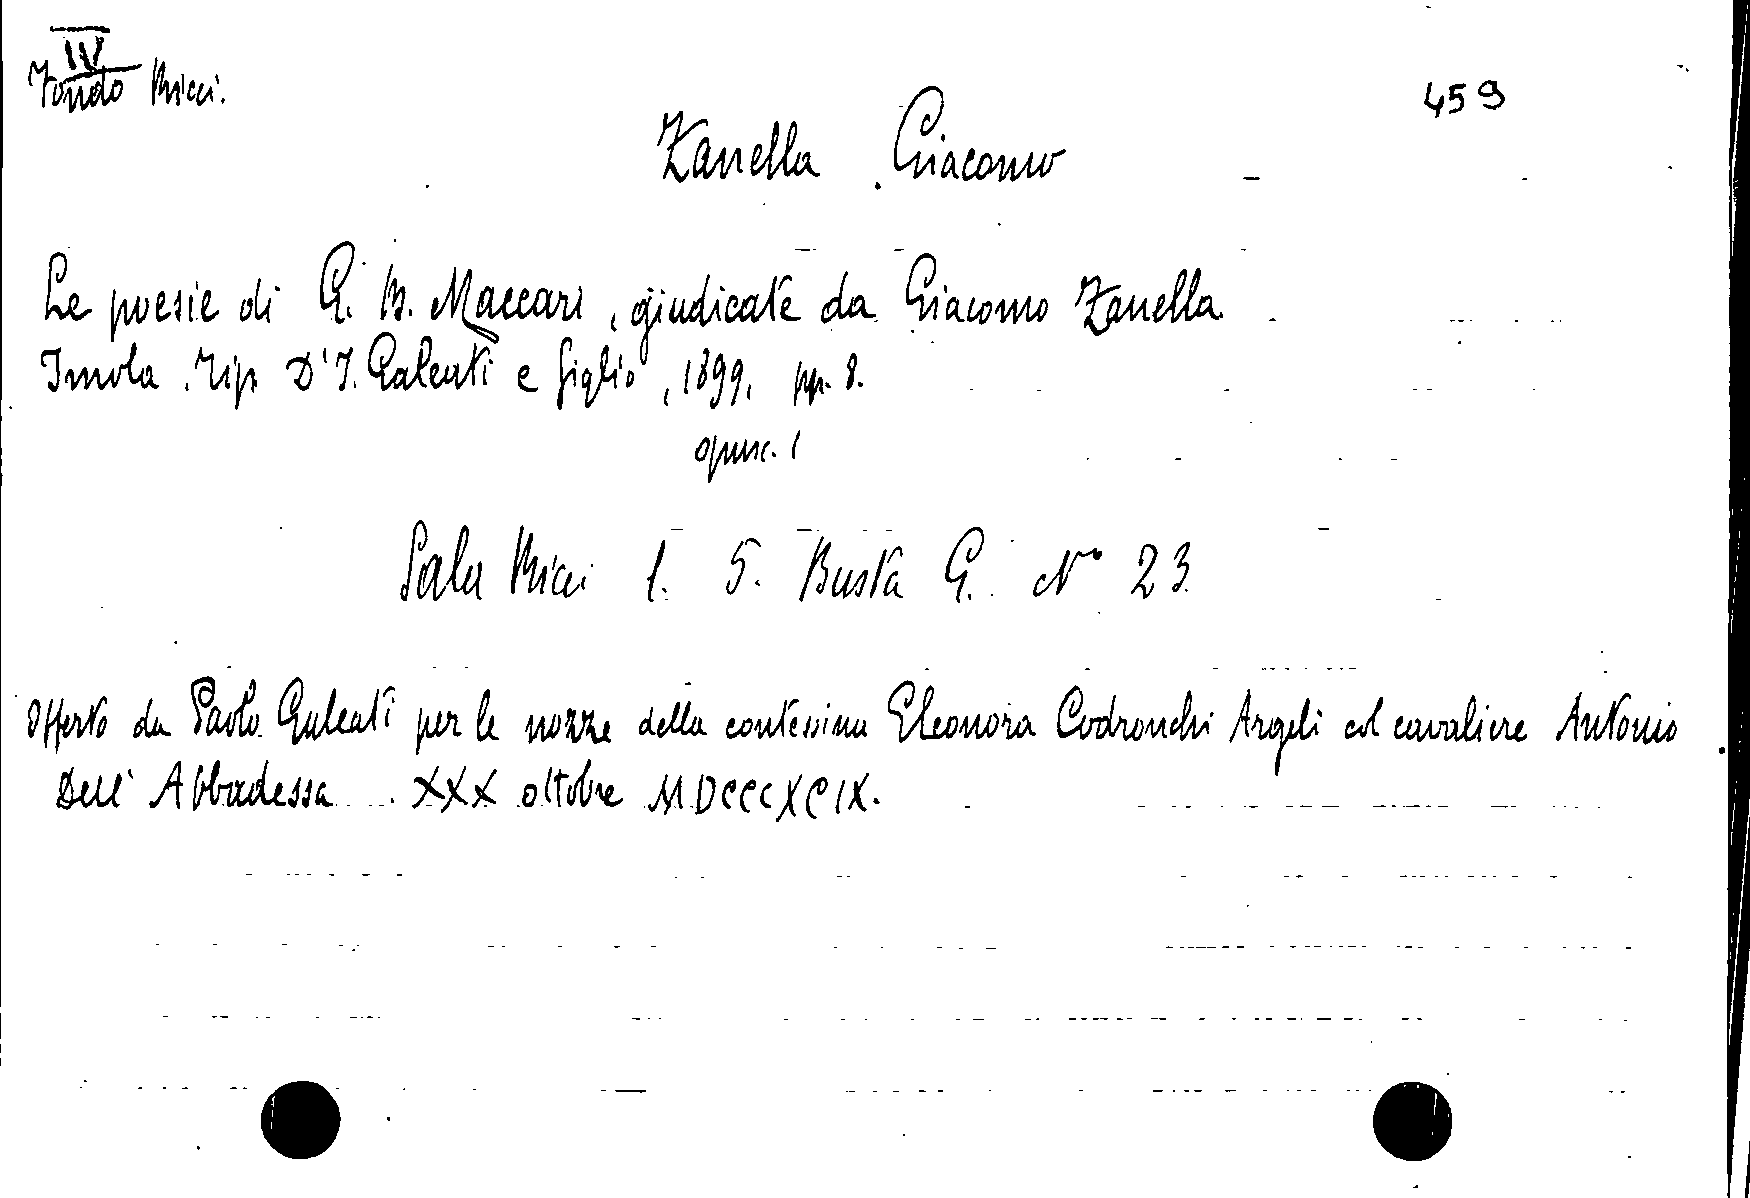 IV
Fondo Ricci.
459
Zanella Giacomo
Le poesie di G. B. Maccari, giudicate da Giacomo Zanella.
Imola, Tip. D'I. Galeati e figlio, 1899, pp. 8.
opusc. 1
Sala Ricci 1. 5. Busta G. N° 23.
Offerto da Paolo Galeati per le nozze della contessina Eleonora Codronchi Argeli col cavaliere Antonio
Dell'Abbadessa XXX ottobre MDCCCXCIX.